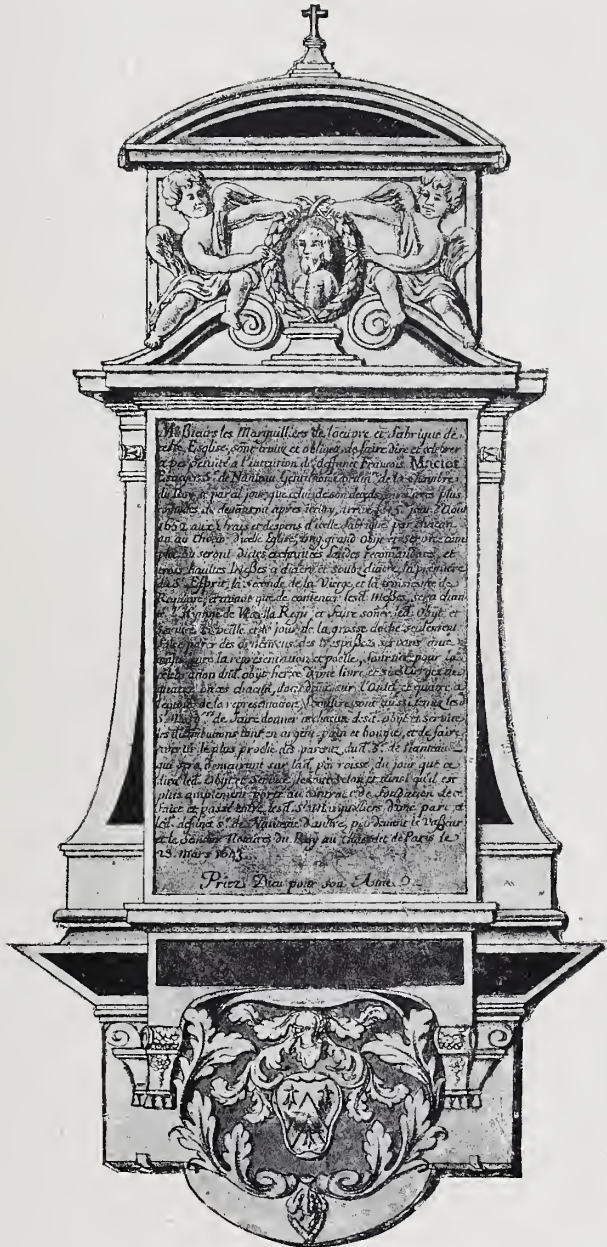 Messieurs les Marguilliers de l'oeuvre et fabrique de
ceste Esglise, sont tenuz et obligez de faire dire et celebrer
a perpetuité a l'intention de deffunct François Maciot
Escuyer Sr. de Nanteau Gentilhomme ordinre de la Chambre
du Roy, a pareil jour que celui de son deceds
jour d'Aout
1652 aux frais et despens d'icelle fabrique par chacun
an au Choeur d'icelle Eglise, ung grand Obyt et Service com
plet, ou seront dictes et chantées Laudes recomandaces, et
trois haultes Messes a diacre et soubz diacre, la premiere
du St. Esprit, la seconde de la Vierge, et la troisiesme de
Requiem, et avant que de comencer lesd. Messes, sera chan
té l'Hymne de Vexilla Regis et faire soner led. Obyt et
Service la veille et le jour de la grosse cloche seulement
des ornemens des trespassez servans
la representation et poelle, fournir pour la
celebration dud. obyt
quatre onces chacun, dont deux sur l'Autel et quatre a
l'entour de la representation, Comme sont aussi tenus lesd.
Srs. Margrs. de faire donner a chacun desd. obyt et service
les distributions tant en argent, pain et bougie, et de faire
avertir le plus proche des parens dud. Sr. de Nanteau
qui sera demeurant sur lad. paroisse, du jour que ce
dira led. Obyt et Service, le tout selon et ainsi qu'il est
plus amplement porté au contract de fondation de ce
faict et passé entre lesd. Srs. Marguilliers d'une part, et
led. deffunct Sr. de Nanteau d'autre, par devant le Vasseur
et le Semelier Notaires du Roy au Chastelet de Paris le
28. mars 1643.
Priez Dieu pour son Ame.